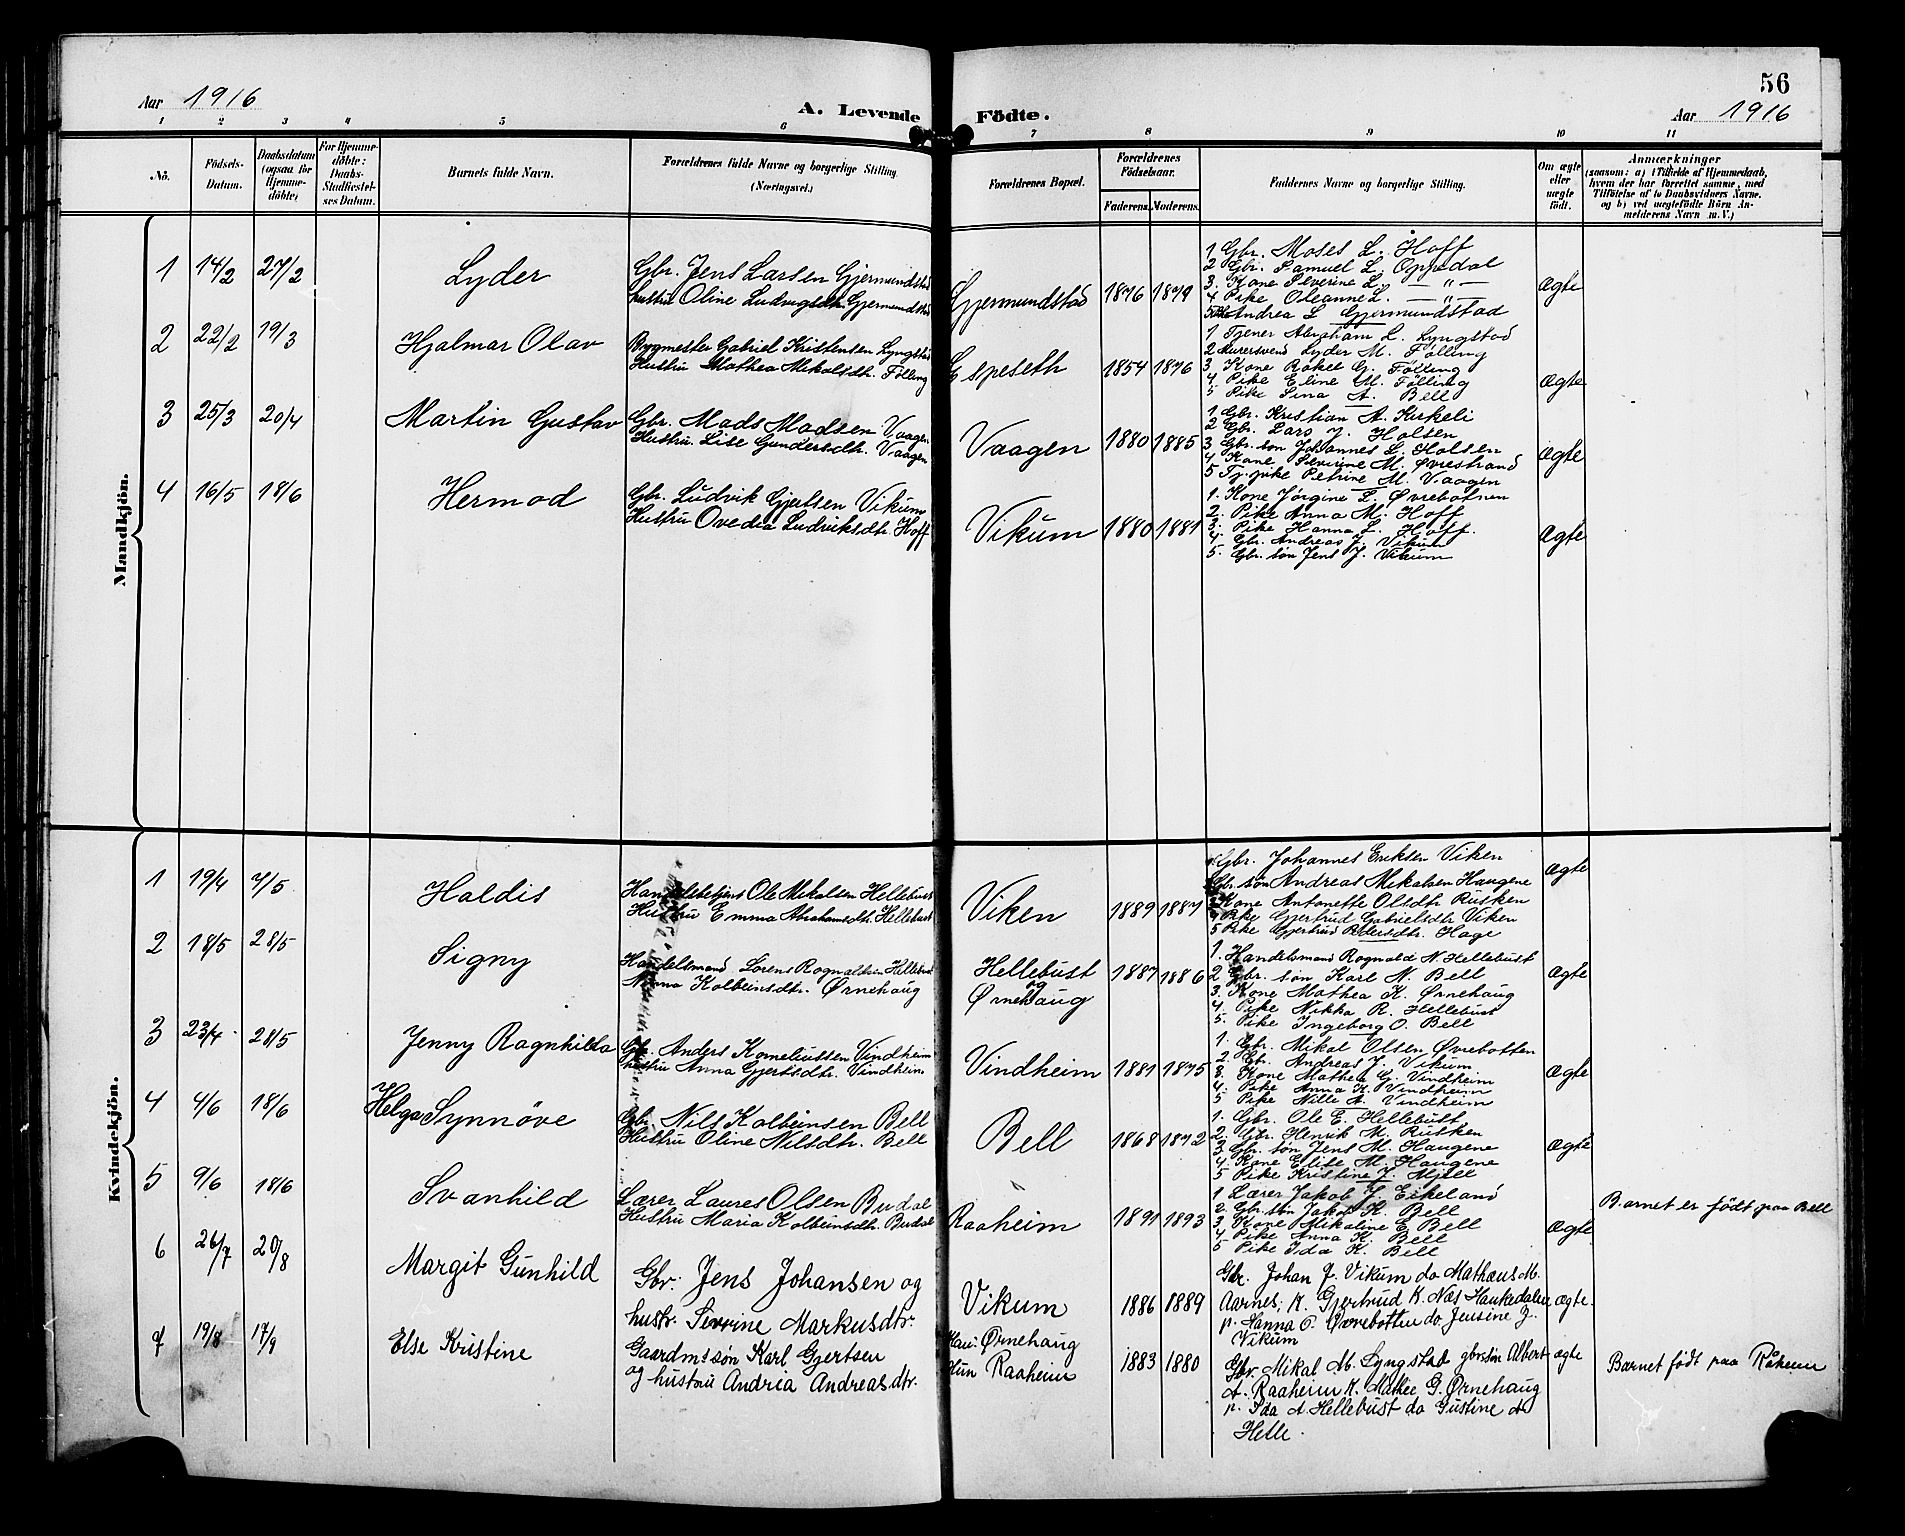 56
Aar 1916
A. Levende Födte.
Aar 1916
1 2 3 4 5 6 7 8 9 10 11
No.
Födsels-Datum.
Daabsdatum (ogsaa for Hjemme-döbte)
For Hjemme-döbte: Daabs-Stadfæstel-ses Datum.
Barnets fulde Navn.
Forældrenes fulde Navne og borgerlige Stilling.
(Næringsvei.)
Forældrenes Bopæl.
Forældrenes Födselsaar.
Faderens. Moderens.
Faddernes Navne og borgerlige Stilling.
Om ægte eller uægte födt.
Anmærkninger
(saasom: a) i Tilfælde af Hjemmedaab,
hvem der har forrettet samme, med
Tilföielse af to Daabsvidners Navne,
og b) ved uægtefödte Börn An-
melderens Navn m.V.)
Mandkjön.
1 14/2 27/2 Lyder
Gbr. Jens Larsen Gjermundstad
Hustru Oline Ludvigsdtr. Gjermundstad
Gjermundstad 1876 1879
1 Gbr. Moses L. Hoff
2 Gbr. Samuel L. Oppedal
3. Kone Severine L. — " —
4 Pike Oleanne L. — " —
5 Andrea L Gjermundstad
Ægte
2 22/2 19/3 Hjalmar Olav
Bygmester Gabriel Kristensen Lyngstad
Hustru Mathea Mikalsdtr. Fölling
Espeseth 1854 1876
1 Tjener Abraham L. Lyngstad
2 Murersvend Lyder M. Fölling
3. Kone Rakel G. Fölling
4. Pike Eline M. Fölling
5 Pike Sina A. Bell
Ægte
3 25/3 20/4 Martin Gustav
Gbr. Mads Madsen Vaagen
Hustru Lise Gundersdtr. Vaagen
Vaagen 1880 1885
1 Gbr. Kristian A. Kirkeli
2 Gbr. Lars J. Holsen
3 Gbr. søn Johannes L. Holsen
4 Kone Severine M. Øvrestrand
5 Tj. pike Petrine M. Vaagen
Ægte
4 16/5 18/6 Hermod
Gbr. Ludvik Gjertsen Vikum
Hustru Ovedia Ludviksdtr. Hoff
Vikum 1880 1881
1. Kone Jørgine L. Øvrebotnen
2. Pike Anna M. Hoff
3. Pike Hanna L. Hoff.
4. Gbr. Andreas J. Vikum
5. Gbr. søn Jens J. Vikum
Ægte
Kvindekjön.
1 19/4 7/5 Haldis
Handelsbetjent Ole Mikalsen Hellebust
Hustru Emma Abrahamsdtr. Hellebust
Viken 1889 1887
Gbr. Johannes Eriksen Viken
Gbr. søn Andreas Mikalsen Haugene
Kone Antonette Olsdtr Rusken
4 Pike Gjertrud Gabrielsdtr Viken
5 Pike Gjertrud Pedersdtr. Hage
Ægte
2 18/5 28/5 Signy
Handelsmand Lorens Rognaldsen Hellebust
Anna Kolbeinsdtr. Ørnehaug
Hellebust og Ørnehaug 1887 1886
1. Handelsmand Rognald N. Hellebust
2 Gbr. søn Karl N. Bell
3. Kone Mathea K. Ørnehaug
4. Pike Nikka R. Hellebust
5. Pike Ingeborg O. Bell
Ægte
3 23/4 28/5 Jenny Ragnhilda
Gbr. Anders Korneliussen Vindheim
Hustru Anna Gjertsdtr. Vindheim
Vindheim 1881 1875
1. Gbr. Mikal Olsen Øvrebotten
2. Gbr. Andreas J. Vikum
3. Kone Mathea G. Vindheim
4. Pike Anna K. Vindheim
5. Pike Nille A. Vindheim
Ægte
4 4/6 18/6 Helga Synnöve
Gbr. Nils Kolbeinsen Bell
Hustru Oline Nilsdtr. Bell
Bell 1868 1872
1. Gbr. Ole E. Hellebust
2. Gbr. Henrik M. Rusken
3. Gbr. søn Jens M. Haugene
4. Kone Elise M. Haugene
5 Pike Kristine J. Mjell
Ægte
5 9/6 18/6 Svanhild
Lærer Laures Olsen Budal
Hustru Maria Kolbeinsdtr. Budal
Raaheim 1891 1893
1 Lærer Jakob J. Eikeland
2. Gbr. søn Jakob K. Bell
3. Kone Mikaline E. Bell
4. Pike Anna K. Bell
5 Pike Ida K. Bell
Ægte
Barnet er födt paa Bell
6 26/7 20/8 Margit Gunhild
Gbr. Jens Johansen og
hustr. Severine Markusdtr.
Vikum 1886 1889
Gbr. Johan J. Vikum do Mathæus M.
Aarnes; K. Gjertrud K. Næs Haukedalen
p. Hanna O. Øvrebotten do Jensine J.
Vikum
ægte.
7 19/8 17/9 Else Kristine
Gaardm. søn Karl Gjertsen
og hustru Andrea Andreasdtr.
Han: Ørnehaug
Hun Raaheim
1883 1880
Gbr Mikal M. Lyngstad gbrsøn Albert
A. Raaheim K. Mathea G. Ørnehaug
p. Ida A. Hellebust do Gustine A
Helle.
ægte
Barnet födt paa Råheim